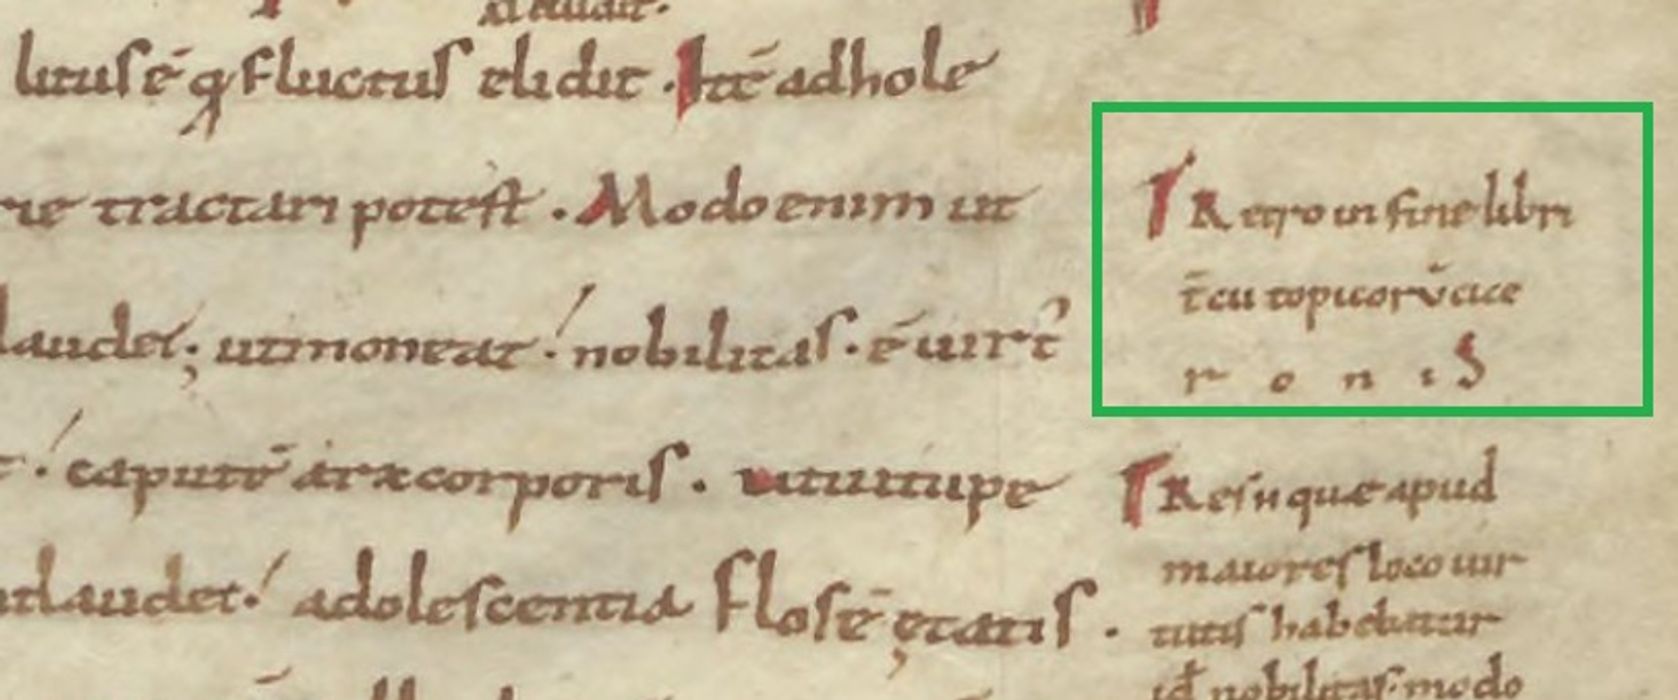 litus ē q fluctus elidit. Itē ad hole
rie tractari potest. Modo enim ut
laudet; ut moneat. nobilitas. ē uirt
caput ē arx corporis. ut uitupe
laudet. adolescentia flos ē ętatis.
Retro in fine libri
t̄cii topicorū cice
r o n i S
Res n quae apud
maiores loco uir
tutis habebatur
id nobilitas modo